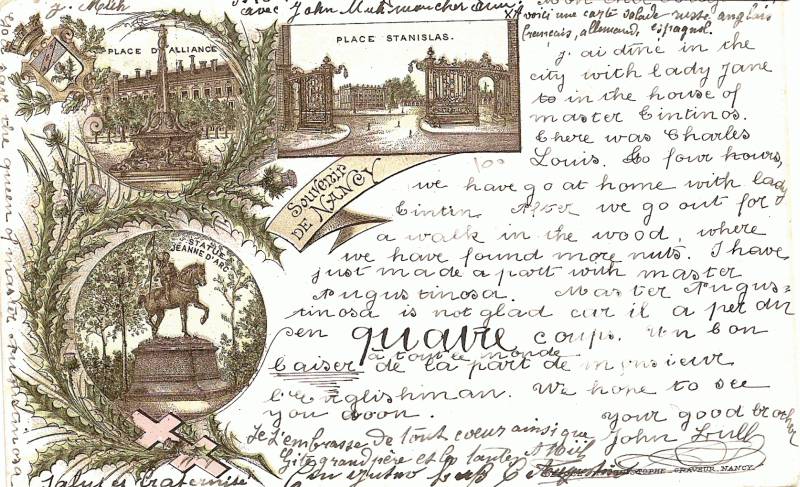 PLACE D'ALLIANCE
PLACE STANISLAS.
SOUVENIR
DE NANCY
STATUE
JEANNE D'ARC
avec John
voici une carte salade russe anglais
français, allemand, espagnol.
j. ai diné in the
city with lady Jane
to in the house of
master Tintinos.
There was Charles
Louis. So four hours,
we have go at home with lady
Tintin. After we go out for
a walk in the wood, where
we have found more nuts. I have
just made a part with master
Augustinosa. Master Augus-
tinosa is not glad car il a perdu
en quatre coups. Un bon
à tout le monde
baiser de la part de monsieur
l'Englishman. We hope to see
you soon. your good brother
John Bull
Je t'embrasse de tout coeur ainsi que
grand père et la tante
Salut et fraternité
the queen of master Augustinosa
GRAVEUR_NANCY
100